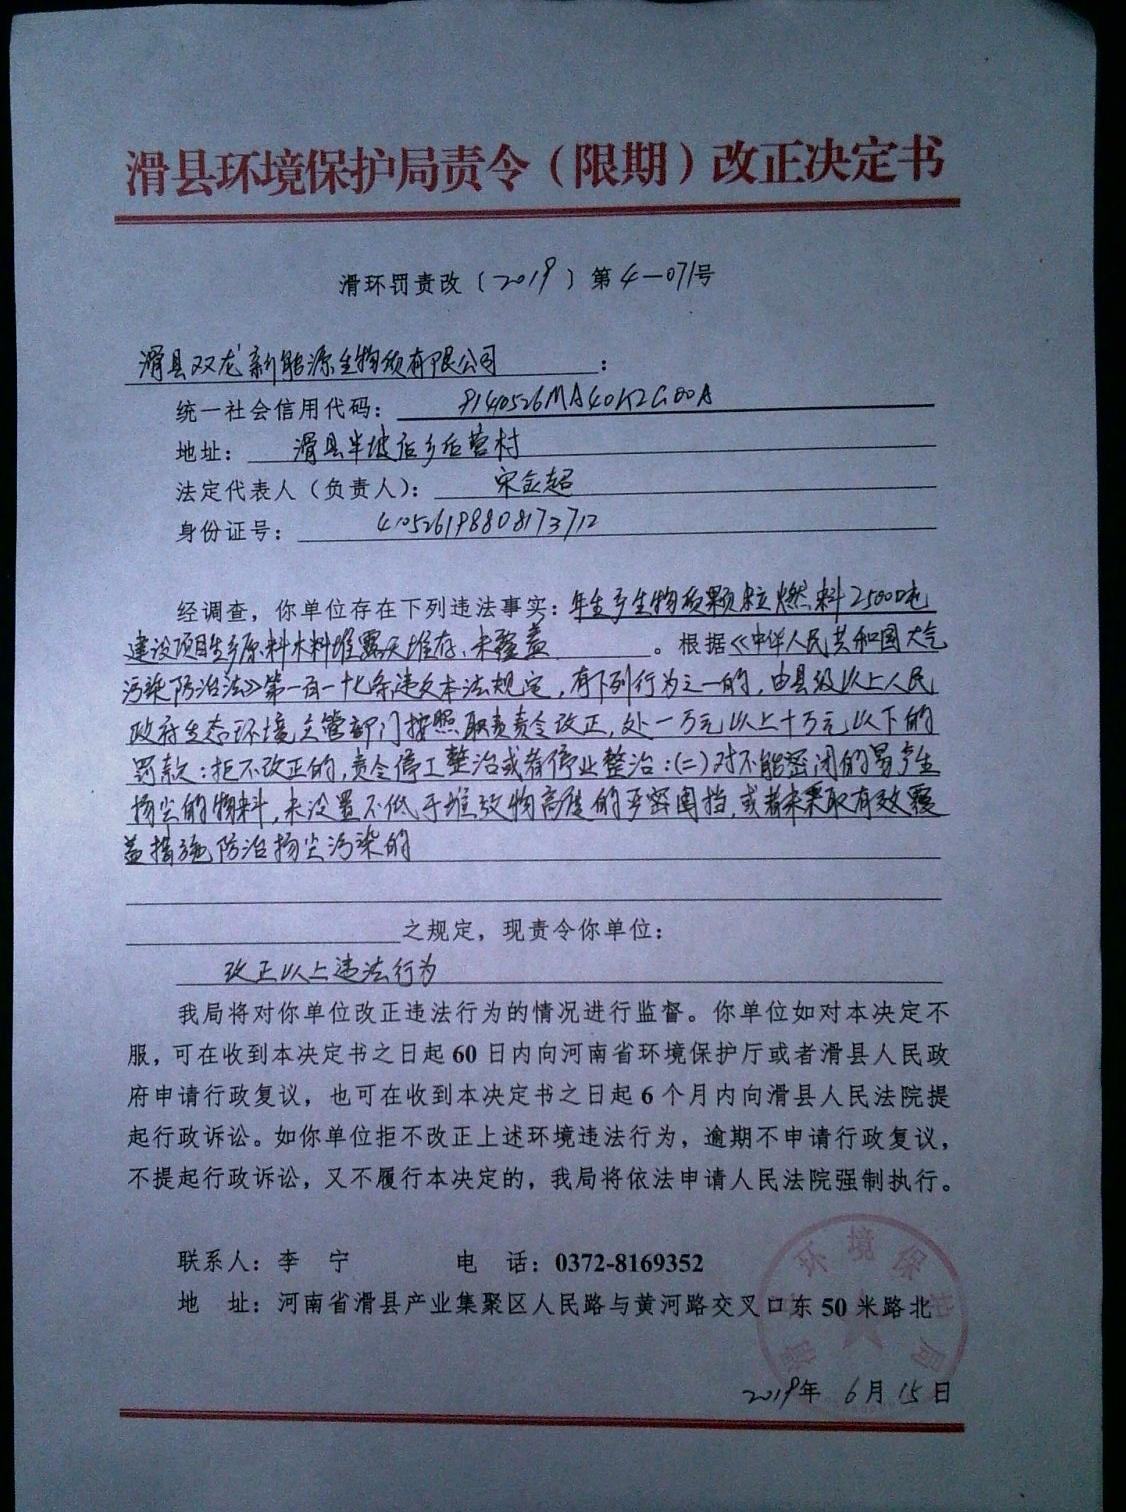 滑县环境保护局责令（限期）改正决定书
滑环罚责改〔2019〕第4—071号
滑县双龙新能源生物质有限公司：
统一社会信用代码：91410526MA40K2G00A
地址：滑县半坡店乡后营村
法定代表人（负责人）：宋金超
身份证号：410526198808173712
经调查，你单位存在下列违法事实：年生产生物质颗粒燃料25000吨
建设项目生产原料木料堆露天堆存、未覆盖。根据《中华人民共和国大气
污染防治法》第一百一十七条违反本法规定，有下列行为之一的，由县级以上人民
政府生态环境主管部门按照职责责令改正，处一万元以上十万元以下的
罚款；拒不改正的，责令停工整治或者停业整治：(二)对不能密闭的易产生
扬尘的物料，未设置不低于堆放物高度的严密围挡，或者未采取有效覆
盖措施防治扬尘污染的
之规定，现责令你单位：
改正以上违法行为
我局将对你单位改正违法行为的情况进行监督。你单位如对本决定不
服，可在收到本决定书之日起60日内向河南省环境保护厅或者滑县人民政
府申请行政复议，也可在收到本决定书之日起6个月内向滑县人民法院提
起行政诉讼。如你单位拒不改正上述环境违法行为，逾期不申请行政复议，
不提起行政诉讼，又不履行本决定的，我局将依法申请人民法院强制执行。
联系人：李 宁 电 话：0372-8169352
地 址：河南省滑县产业集聚区人民路与黄河路交叉口东50米路北
滑县环境保护局
2019年 6月 15日